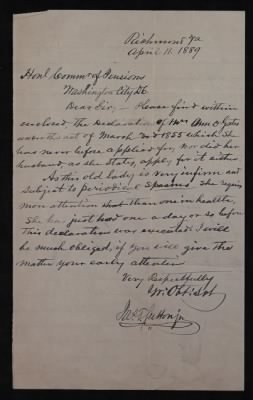 Richmond Va
April 11. 1889
Honl Commr of Pensions
Washington City D.C.
Dear Sir, - Please find within
enclosed, the Declaration of Mrs Ann O. Yates
under the act of March 3rd 1855 which she
has never before applied for, nor did her
husband, as she states, apply for it either.
As this old Lady is very infirm and
subject to periodical Spasms She requires
more attention than one in health.
She has just had one a day or so before
this declaration was executed. I will
be much obliged, if you will give the
matter your early attention
Very Respectfully
Jas. T. Sutton Jr